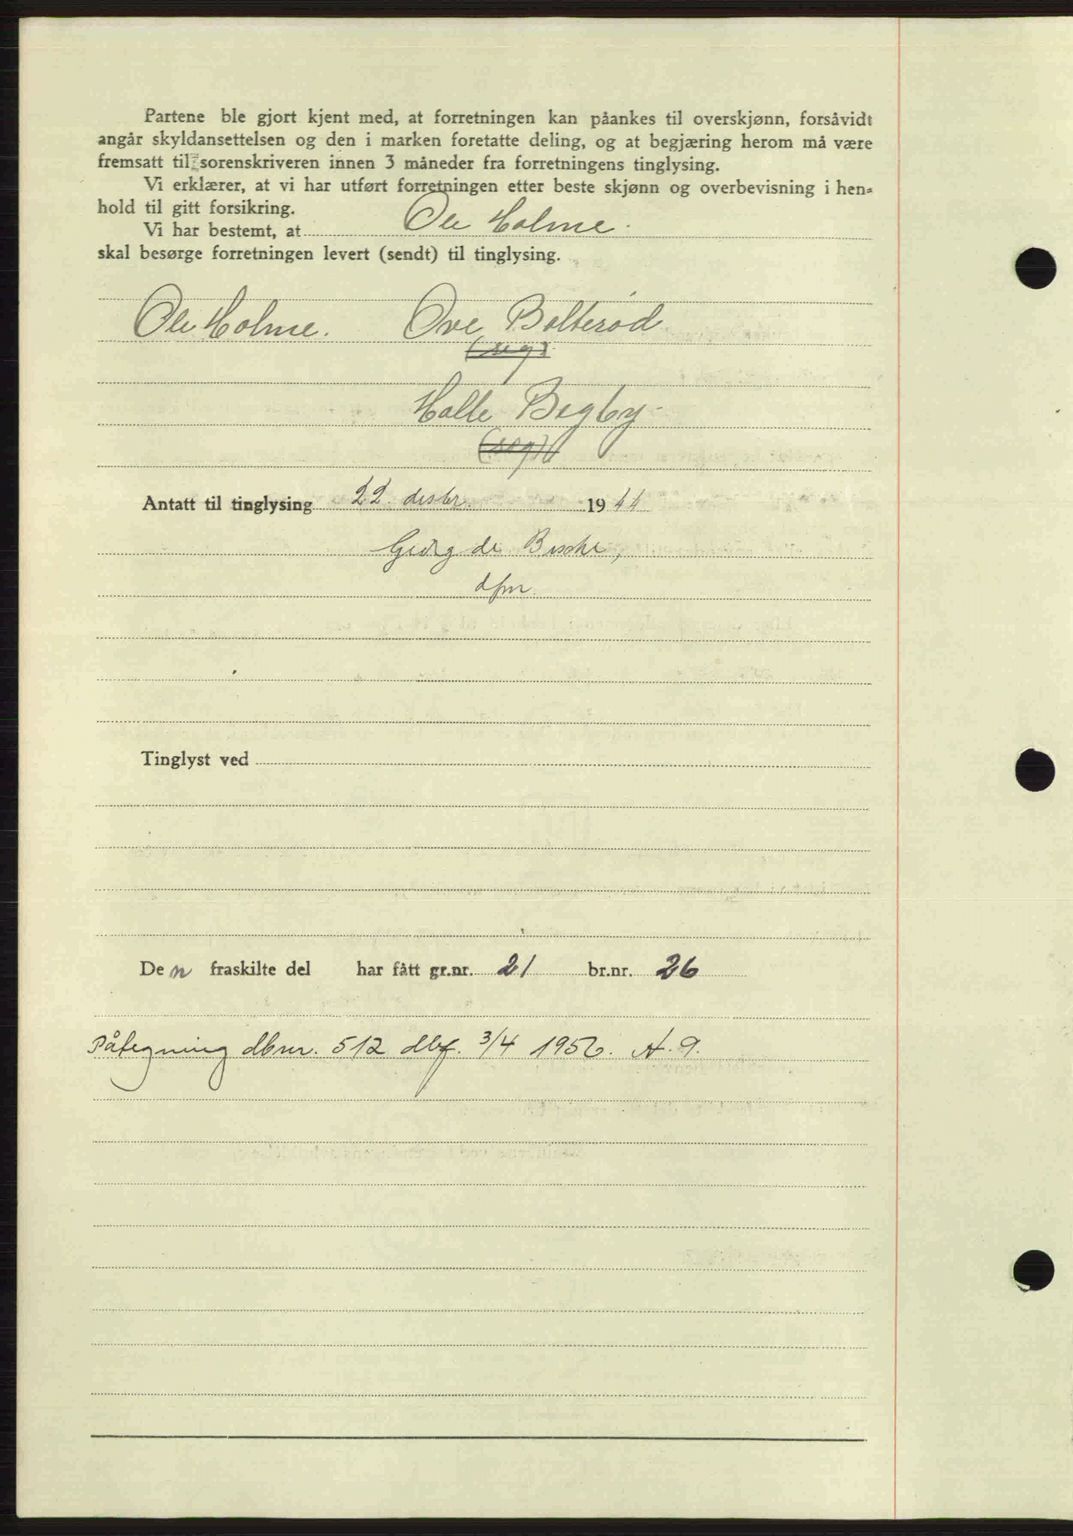 Partene ble gjort kjent med, at forretningen kan påankes til overskjønn, forsåvidt
angår skyldansettelsen og den i marken foretatte deling, og at begjæring herom må være
fremsatt til sorenskriveren innen 3 måneder fra forretningens tinglysing.
Vi erklærer, at vi har utført forretningen etter beste skjønn og overbevisning i hen=
hold til gitt forsikring.
Vi har bestemt, at Ole Holme.
skal besørge forretningen levert (sendt) til tinglysing.
Ole Holme. Ove Bolterød
Halle Bigby
Antatt til tinglysing 22. desbr. 1944
Georg de Besche,
dfm
Tinglyst ved
Den fraskilte del har fått gr.nr. 21 br.nr. 26
Påtegning dbnr. 512 dbf. 3/4 1956. A. 9.